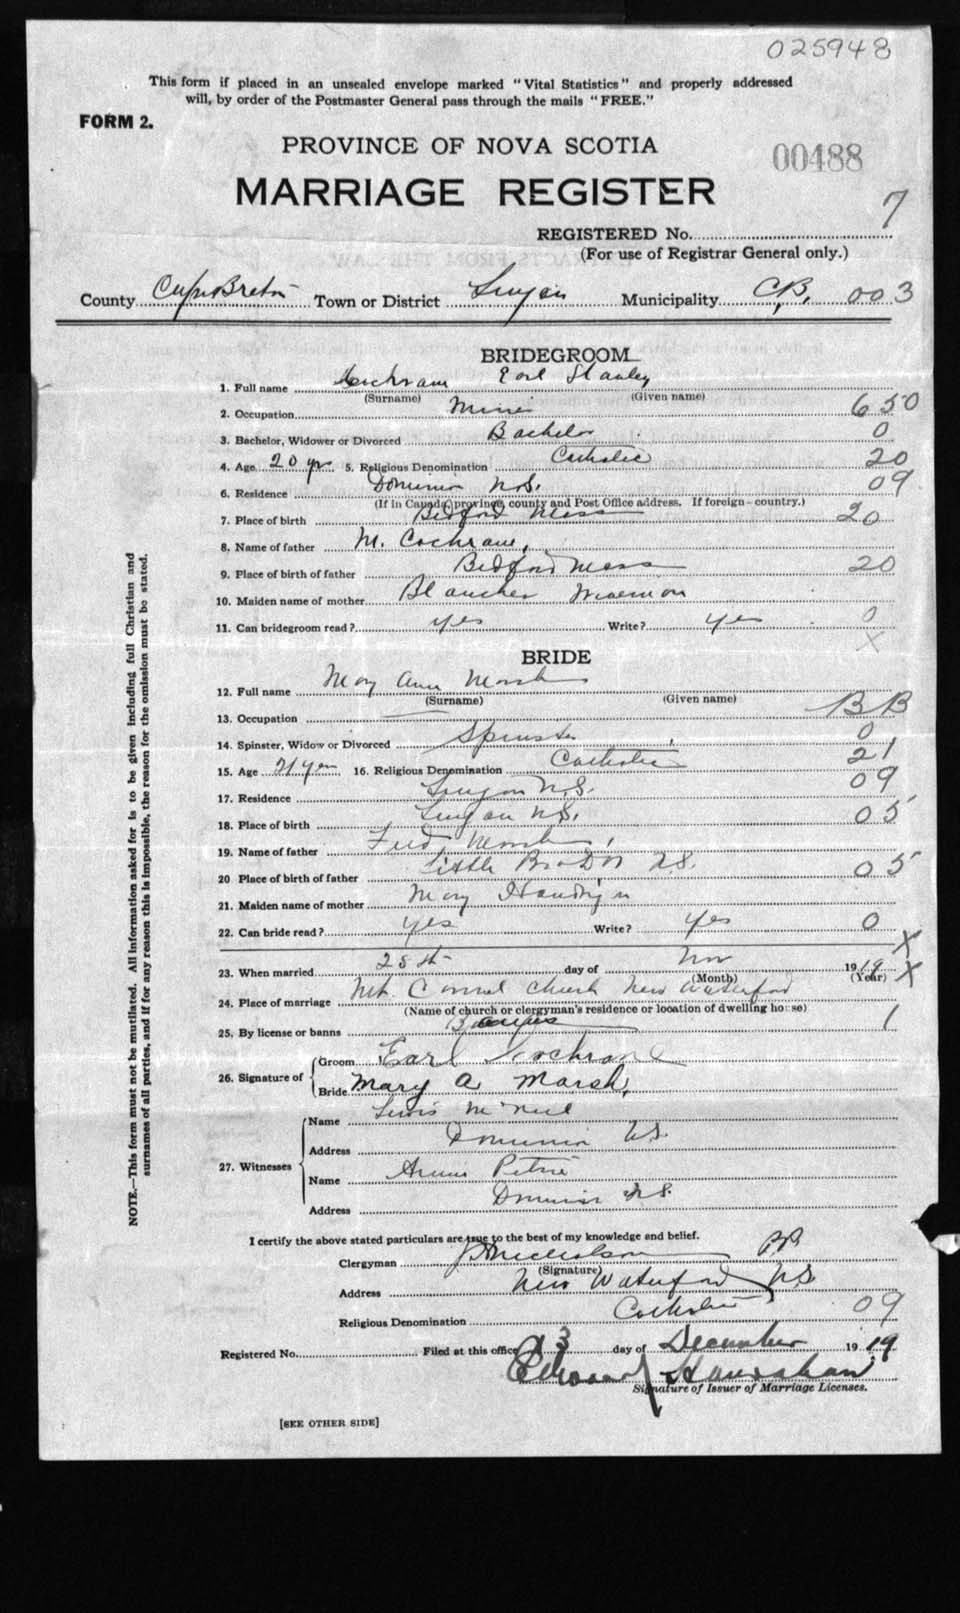 025948
This form if placed in an unsealed envelope marked "Vital Statistics" and properly addressed
will, by order of the Postmaster General pass through the mails "FREE."
FORM 2.
PROVINCE OF NOVA SCOTIA
00488
MARRIAGE REGISTER
7
REGISTERED No.
(For use of Registrar General only.)
County Cape Breton Town or District Lingan Municipality C.B. 003
BRIDEGROOM
1. Full name Cochrane Earl Stanley
(Surname) (Given name)
2. Occupation Miner 650
3. Bachelor, Widower or Divorced Bachelor 0
4. Age 20 yrs 5. Religious Denomination Catholic 20
6. Residence Dominion N.S. 09
(If in Canada, province, county and Post Office address. If foreign-country.)
7. Place of birth Bedford Mass 20
8. Name of father M. Cochrane,
9. Place of birth of father Bedford Mass 20
10. Maiden name of mother
11. Can bridegroom read? yes Write? yes 0
X
BRIDE
12. Full name Mary Ann Marsh
(Surname) (Given name)
13. Occupation BB
14. Spinster, Widow or Divorced Spinster 0
15. Age 21 yrs 16. Religious Denomination Catholic 21
17. Residence Lingan N.S. 09
18. Place of birth Lingan N.S. 05
19. Name of father Fred Marsh
20 Place of birth of father Little Bras D'or N.S. 05
21. Maiden name of mother Mary
22. Can bride read? yes Write? yes 0
X
23. When married 25th day of Nov 1919 X
(Month) (Year)
24. Place of marriage Mt. Carmel Church New Waterford
(Name of church or clergyman's residence or location of dwelling house)
25. By license or banns Banns 1
26. Signature of Groom Earl Cochrane
Bride Mary A Marsh,
27. Witnesses Name Lewis McNeil
Address Dominion N.S.
Name Annie Petrie
Address Dominion N.S.
I certify the above stated particulars are true to the best of my knowledge and belief.
Clergyman J. H. Nicholson PP
(Signature)
Address New Waterford N.S.
Religious Denomination Catholic 09
Registered No. Filed at this office 3 day of December 1919
Edward Hanrahan
Signature of Issuer of Marriage Licenses.
[SEE OTHER SIDE]
NOTE.—This form must not be mutilated. All information asked for is to be given including full Christian and
surnames of all parties, and if for any reason this is impossible, the reason for the omission must be stated.